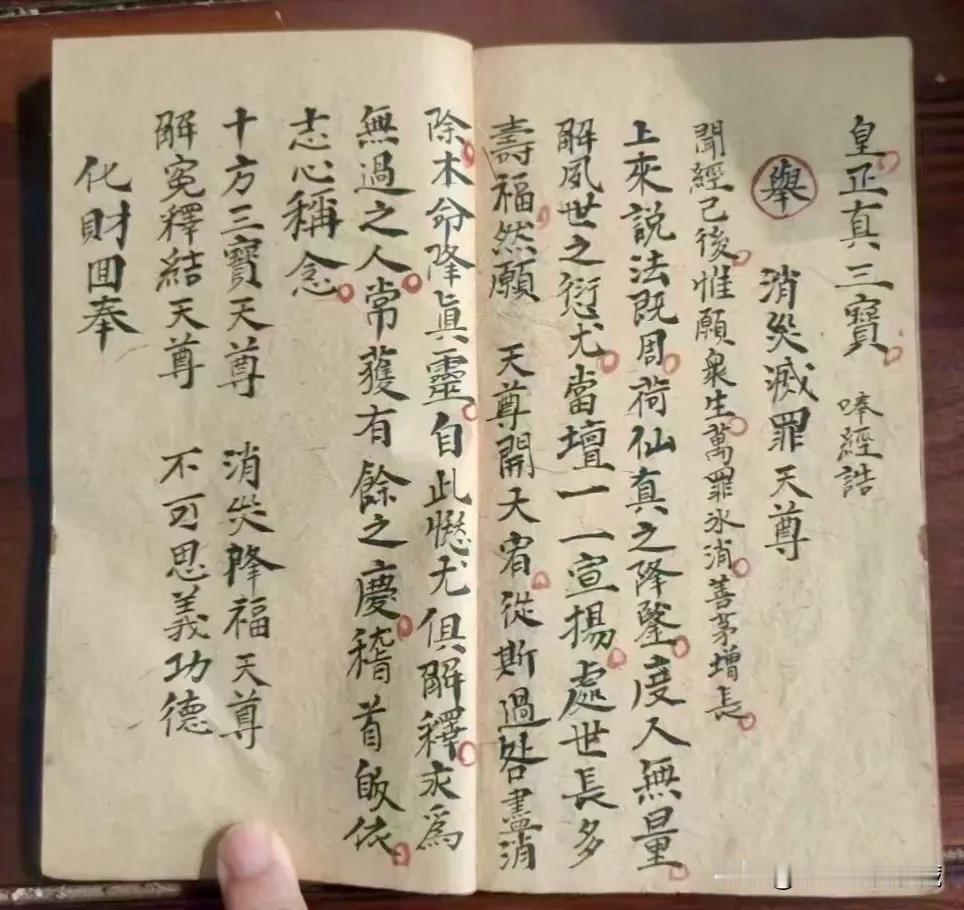 皇正真三寶 唪經誥
舉 消災滅罪天尊
聞經已後惟願衆生萬罪冰消善芽增長
上來說法既周荷仙真之降鑒度人無量
解夙世之愆尤當壇一一宣揚處世長多
壽福然願 天尊開大宥從斯過咎盡消
除本命降真靈自此愆尤俱解釋永爲
無過之人常獲有餘之慶稽首皈依
志心稱念
十方三寶天尊 消災降福天尊
解冤釋結天尊 不可思義功德
化財回奉